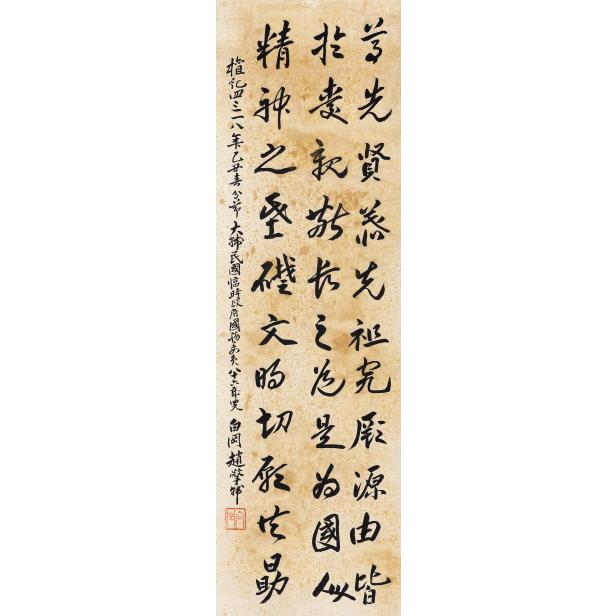 尊先賢慕先祖究厥源由皆
於愛親敬長之道是為國
精神之基礎文明切願共勗
檀紀四三一八年乙丑春分節 大韓民國臨時政府國務委員 八十六歲叟 白岡 趙擎韓